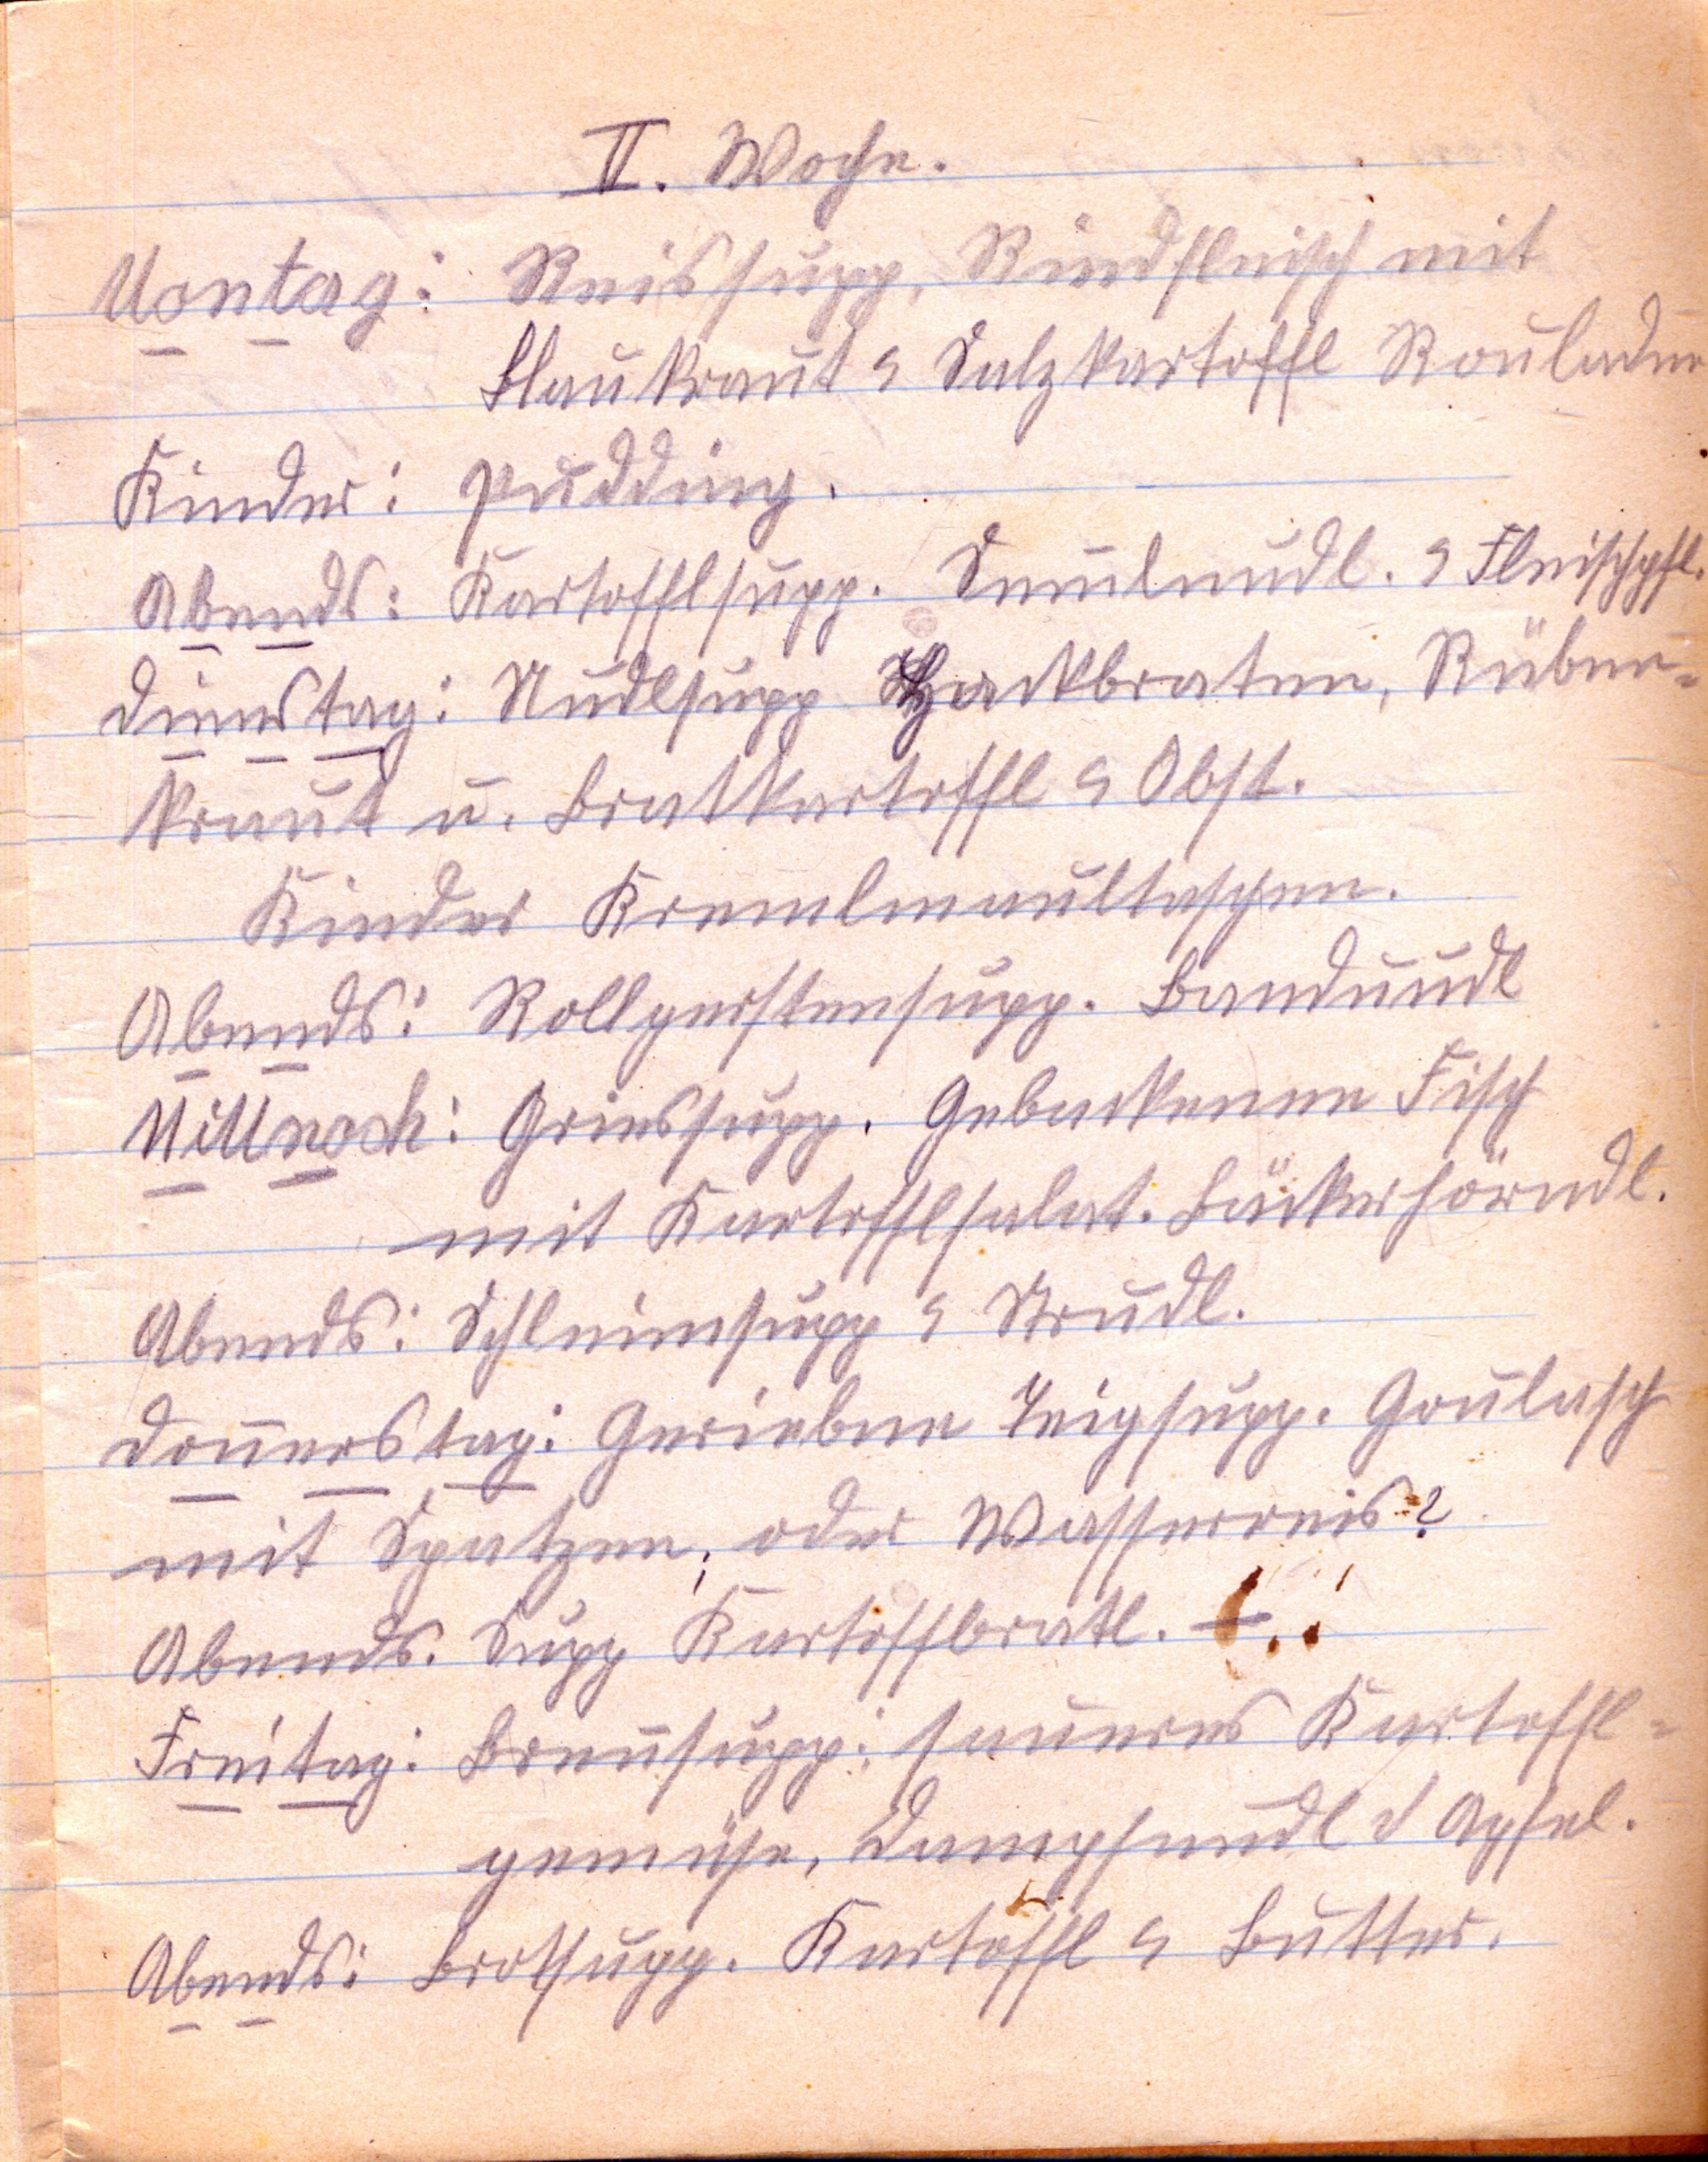 II. Woche.
Montag: Reissupp, Rindfleisch mit
Blaukraut & Salzkartoffl Rouladen
Kinder: Pudding.
Abends: Kartofflsupp. & Fleischpfl.
Dienstag: Nudlsupp Hackbraten, Rüben-
kraut u. Bratkartoffl & Obst.
Kinder Kremlmaultaschen.
Abends: Rollgerstensupp. Bandnudl
Mittwoch: Griessupp. Gebackenen Fisch
mit Kartofflsalat. Bäckerhörndl.
Abends: Schleimsupp & Strudl.
Donnerstag: Geriebne Teigsupp. Goulasch
mit Spatzen, oder Wasserreis?
Abends. Supp Kartoffbratl. –
Freitag: Brennsupp: saueres Kartoffl-
gemüse, Dampfnudl & Apfel.
Abends: Brotsupp. Kartoffl & Butter.